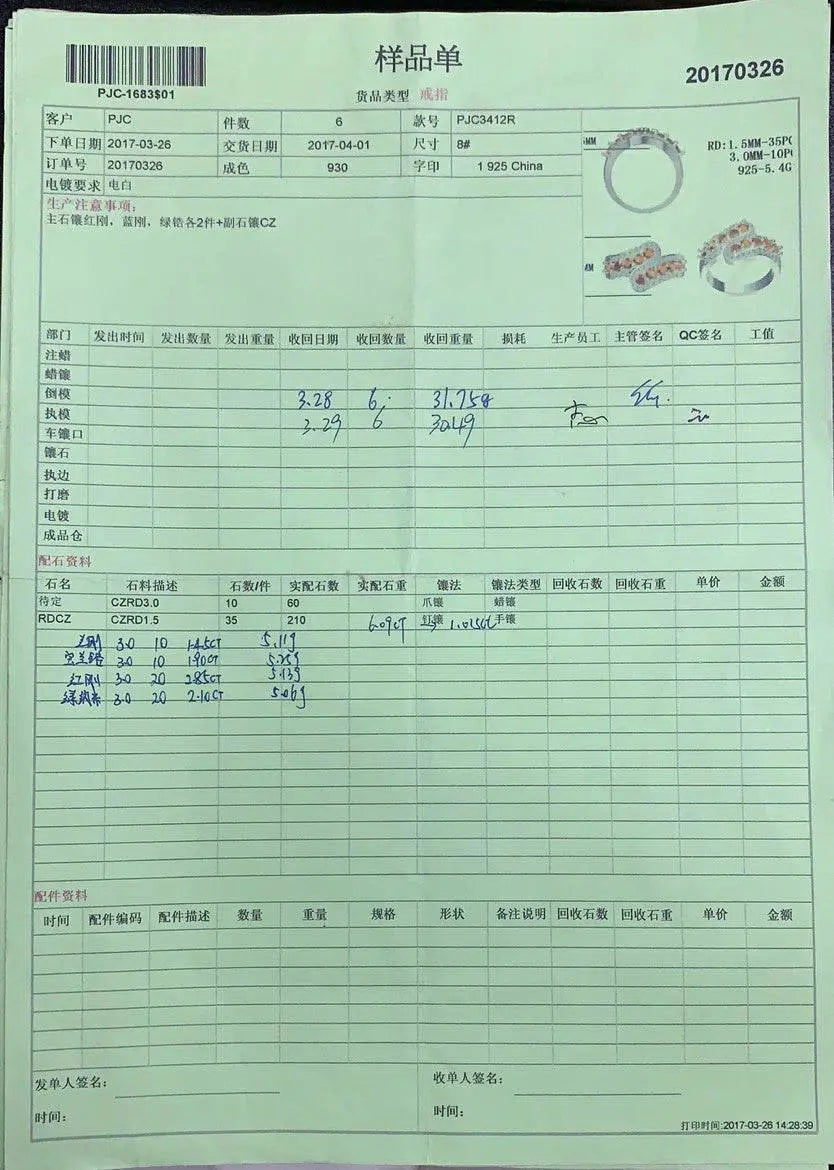 样品单
20170326
PJC-1683$01
货品类型 戒指
客户 PJC 件数 6 款号 PJC3412R
下单日期 2017-03-26 交货日期 2017-04-01 尺寸 8#
订单号 20170326 成色 930 字印 1 925 China
电镀要求 电白
生产注意事项:
主石镶红刚，蓝刚，绿锆各2件+副石镶CZ
MM
RD:1.5MM-35P
3.0MM-10P
925-5.4G
MM
部门 发出时间 发出数量 发出重量 收回日期 收回数量 收回重量 损耗 生产员工 主管签名 QC签名 工值
注蜡
蜡镶
倒模 3.28 6 31.75g
执模 3.29 6 30.49
车镶口
镶石
执边
打磨
电镀
成品仓
配石资料
石名 石料描述 石数/件 实配石数 实配石重 镶法 镶法类型 回收石数 回收石重 单价 金额
待定 CZRD3.0 10 60 爪镶 蜡镶
RDCZ CZRD1.5 35 210 6.09CT 钉镶 手镶
3.0 10 1.45CT 5.11g
3.0 10 1.90CT 5.25g
红刚 3.0 20 2.85CT 5.13g
3.0 20 2.10CT 5.06g
配件资料
时间 配件编码 配件描述 数量 重量 规格 形状 备注说明 回收石数 回收石重 单价 金额
发单人签名:
收单人签名:
时间:
时间:
打印时间:2017-03-26 14:28:39